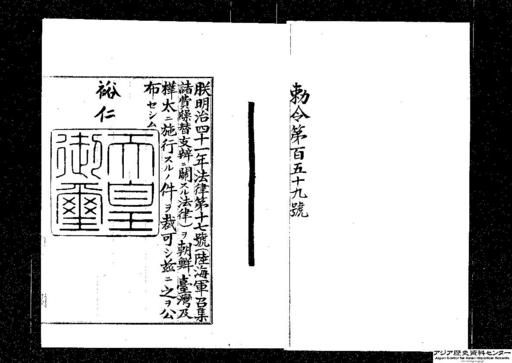 勅令第百五十九號
朕明治四十一年法律第十七號(陸海軍召集
諸費繰替支辨ニ關スル法律)ヲ朝鮮、臺灣及
樺太ニ施行スルノ件ヲ裁可シ茲ニ之ヲ公
布セシム
裕仁
天皇
御璽
アジア歴史資料センター
Japan Center for Asian Historical Records